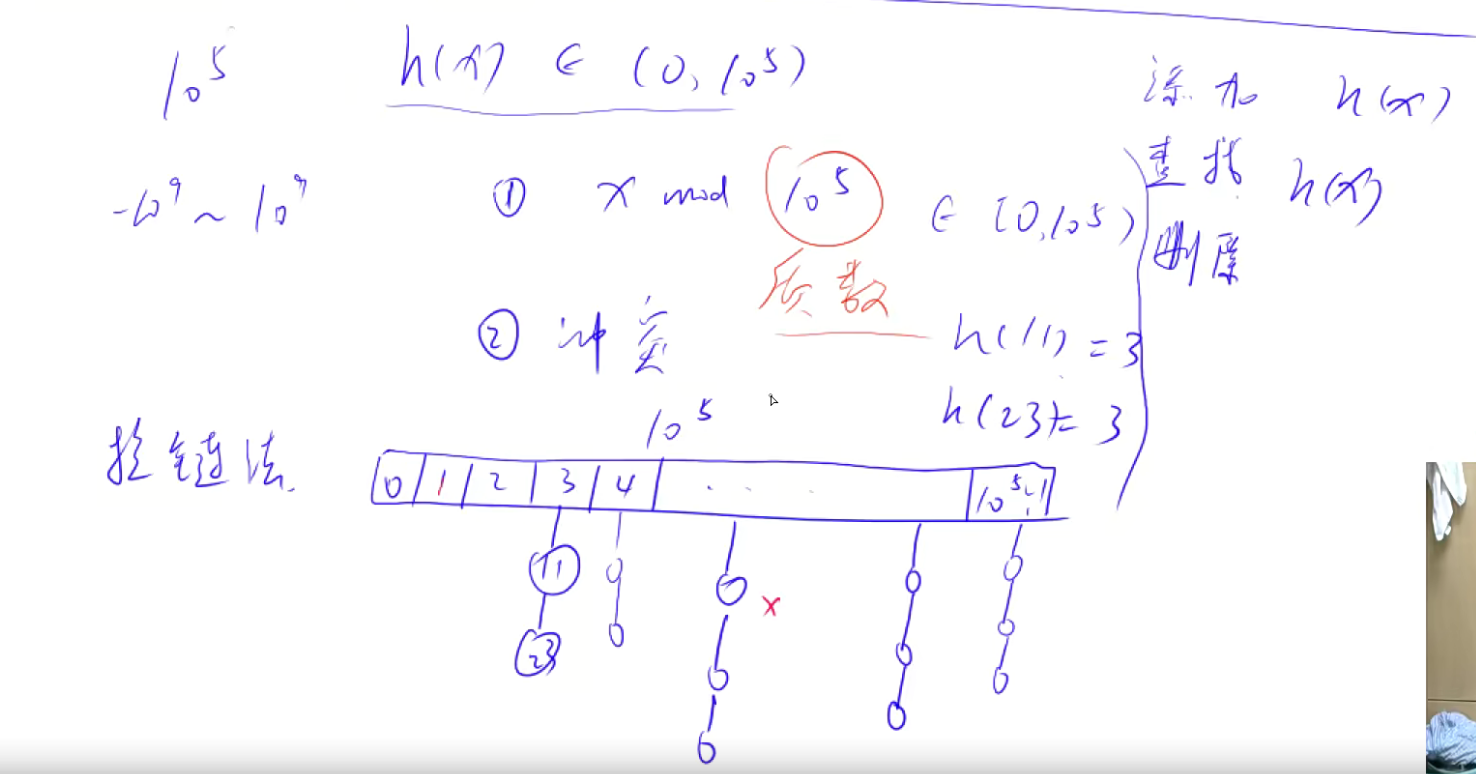 10^5 h(x) ∈ (0, 10^5)
-10^9 ~ 10^9
① x mod 10^5 ∈ [0, 10^5)
质数
② 冲突
h(11) = 3
h(23) = 3
添加 h(x)
查找 h(x)
删除
拉链法
10^5
0 1 2 3 4 . . . 10^5-1
11
23
x